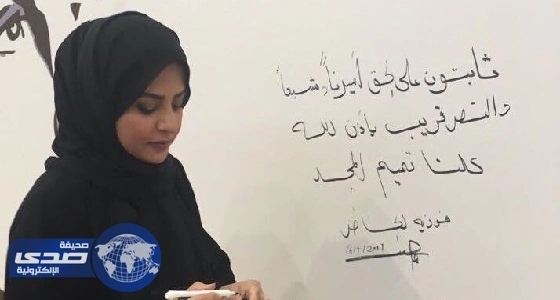 ثابتون على الحق أميراً وشعباً
والنصر قريب بإذن الله
كلنا تميم المجد
فوزيه
صحيفة
صدى
الإلكترونية